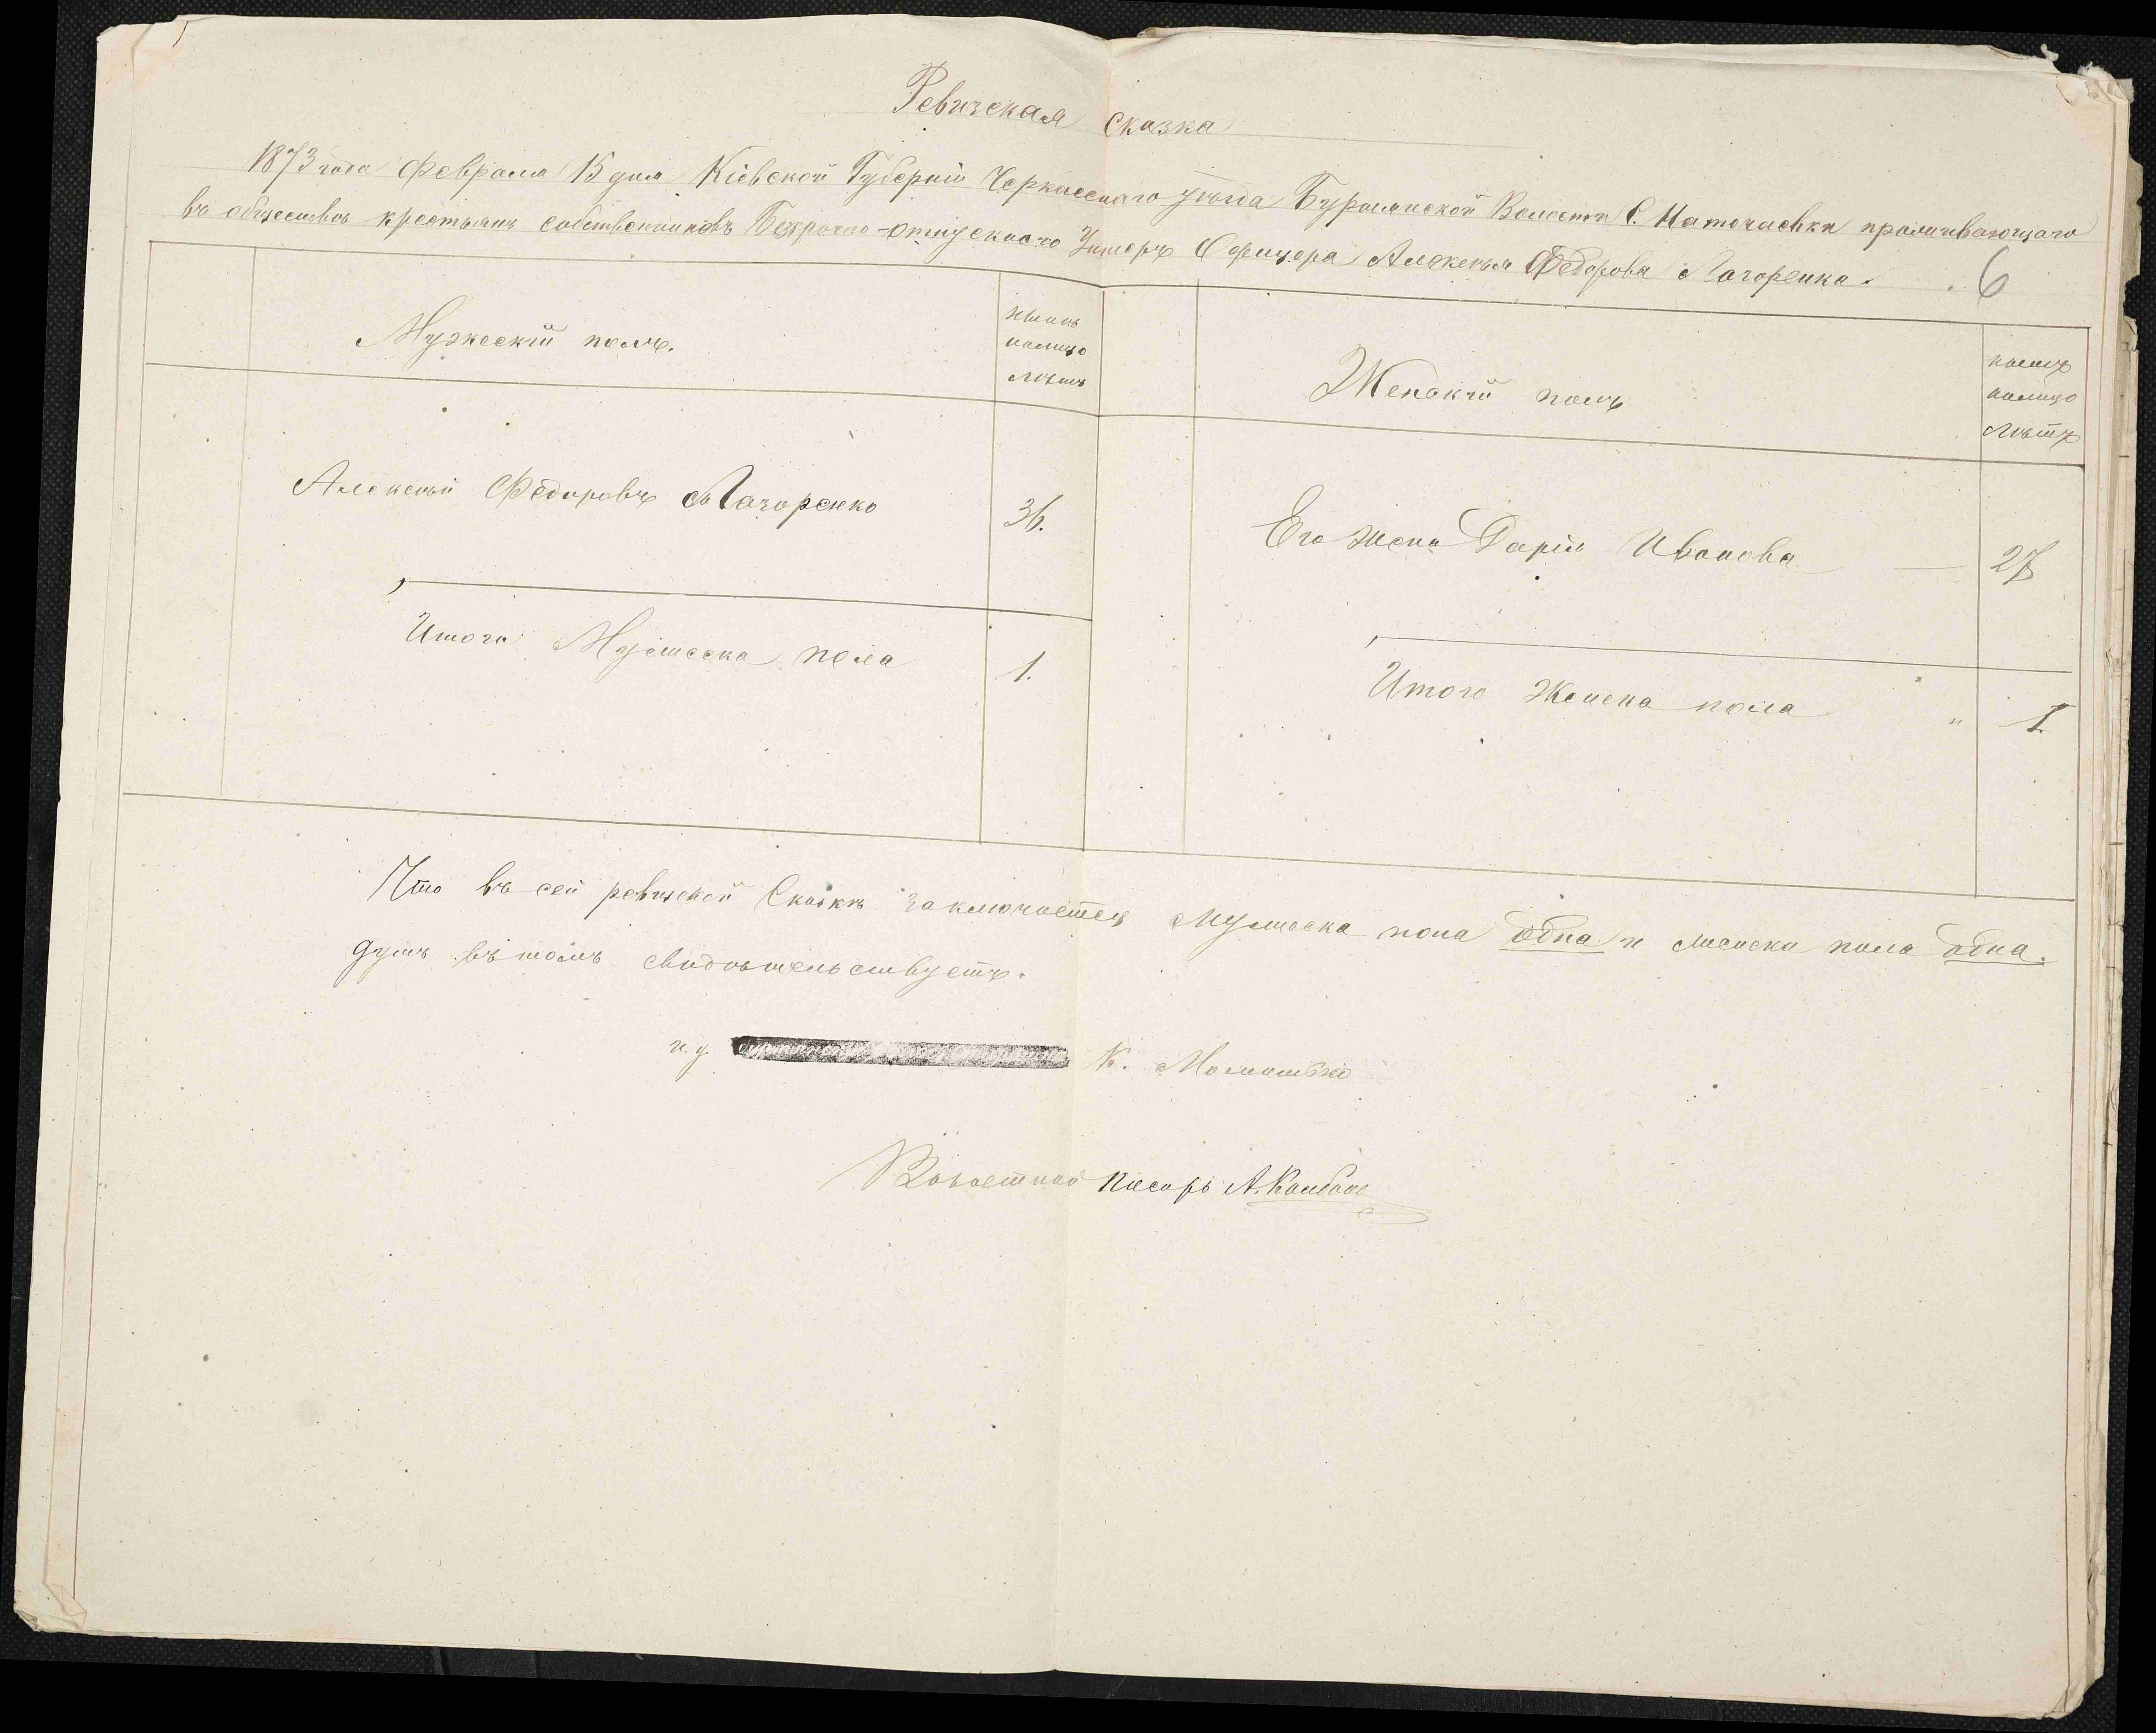 Ревизская сказка
1873 года Февраля 15 дня Кіевской Губерніи Черкасскаго уѣзда Буртянской Волости С. Матвѣевки проживающаго
въ обществѣ крестьянъ собственниковъ Безсрочно-отпускнаго Унтеръ Офицера Алексѣя Федорова Логоренка.
6
Мужескій полъ.
нынѣ
налицо
лѣтъ
Женскій полъ
нынѣ
налицо
лѣтъ
Алексѣй Федоровъ Логоренко
36.
Его жена Дарія Иванова
27
Итого Мужеска пола
1.
Итого Женска пола
" 1.
Что въ сей ревизской Сказкѣ заключается мужеска пола одна и женска пола одна.
душъ въ томъ свидѣтельствуетъ.
и. д. К.
Волостной писарь А.